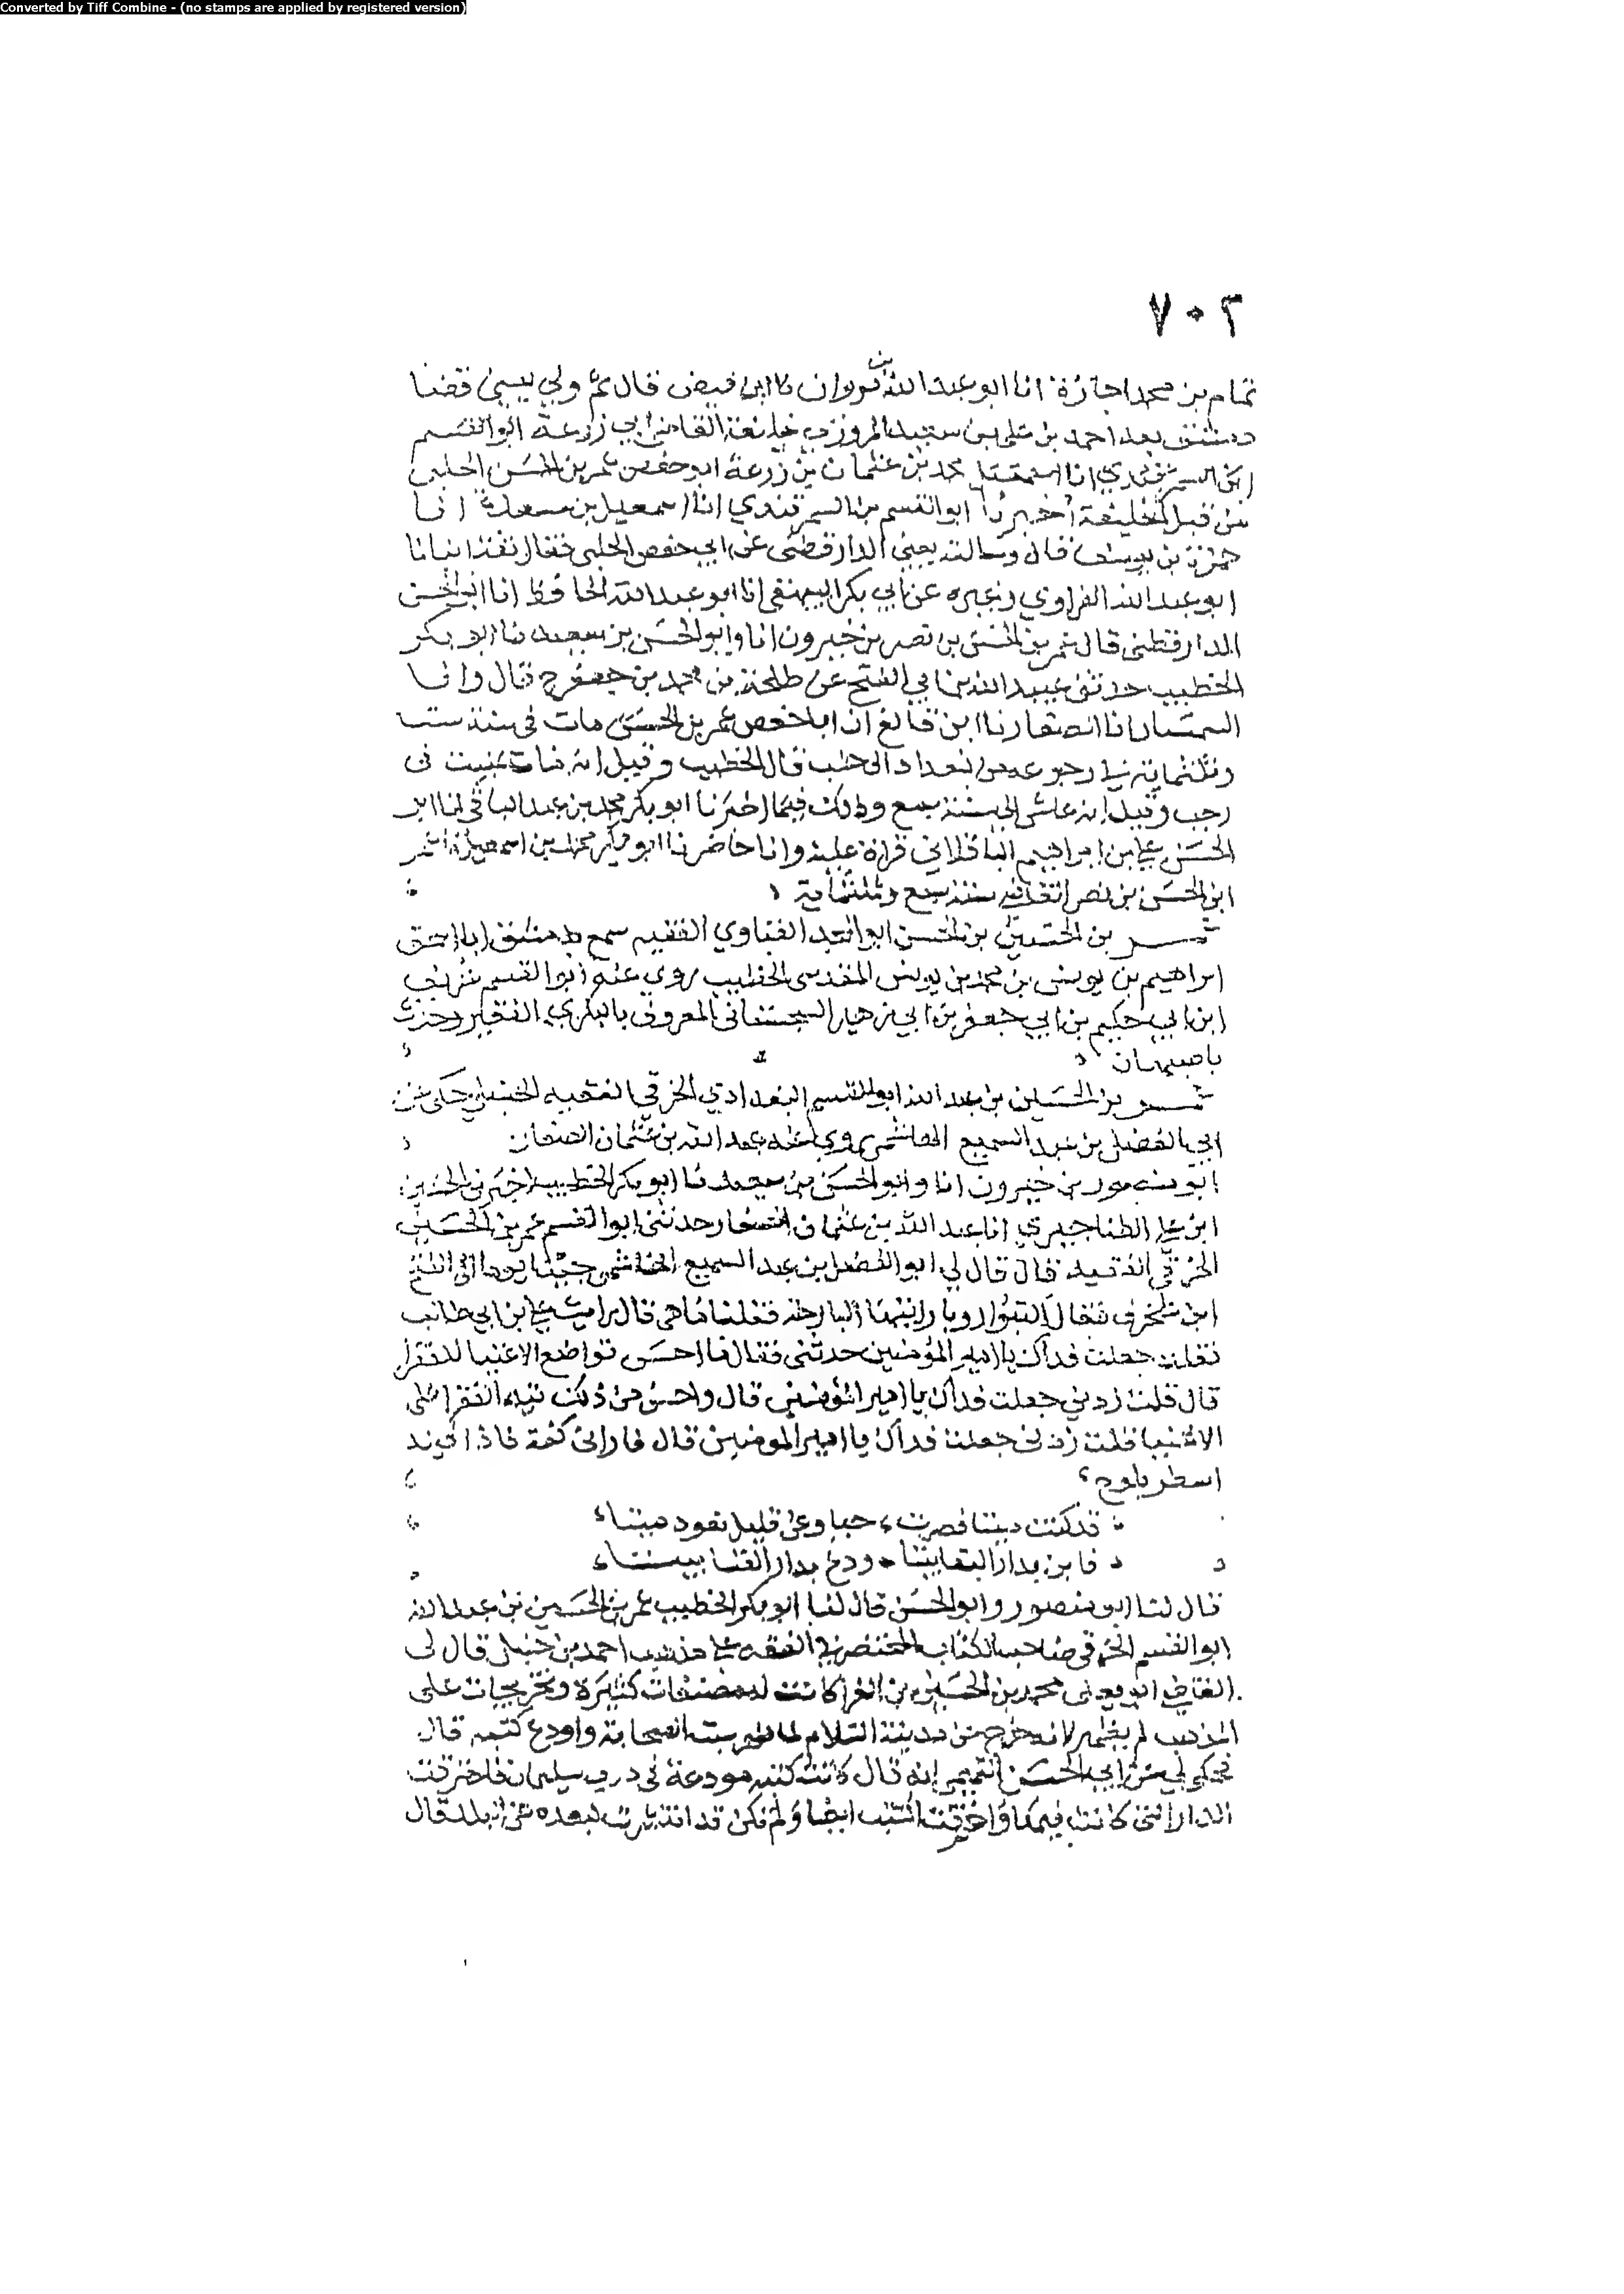 Converted by Tiff Combine - (no stamps are applied by registered version)
٧٠٢
تمام بن محمد اجازة انا ابو عبد الله بن مروان نا ابن فيض قال ثم ولي يعني قضا
دمشق بعد احمد بن علي بن سعيد المروزي خليفة القاضي ابي زرعة ابو القسم
ابن السمرقندي انا محمد بن عثمان بن زرعة ابو حفص عمر بن الحسن الحلبي
من قبل الخليفة أخبرنا ابو القسم بن السمرقندي انا اسمعيل بن مسعدة انا
حمزة بن يوسف قال وسالته يعني الدارقطني عن ابي حفص الحلبي فقال ثقة انبانا
ابو عبد الله الفراوي وغيره عن ابي بكر البيهقي انا ابو عبد الله الحافظ انا ابو الحسن
الدارقطني قال عمر بن الحسن بن نصر بن خيرون انا وابو الحسن بن سعيد نا ابو بكر
الخطيب حدثني عبيد الله بن ابي الفتح عن طلحة بن محمد بن جعفر ح قال وانا
السمسار انا الصفار نا ابن قانع ان ابا حفص عمر بن الحسن مات في سنة ست
وثلثماية في رجوعه من بغداد الى حلب قال الخطيب وقيل انه مات بهيت في
رجب وقيل انه عاش الى سنة سبع وذلك فيما اخبرنا ابو بكر محمد بن عبد الباقي انا ابو
الحسن علي بن ابراهيم الباقلاني قراة عليه وانا حاضر نا ابو بكر محمد بن اسمعيل نا عمر
ابن الحسن بن نصر سنة سبع وثلثماية
عمر بن الحسين بن الحسن ابو الفقيه سمع بدمشق ابا اسحق
ابراهيم بن يونس بن محمد بن يونس المقدسي الخطيب روى عنه ابو القسم
ابن ابي حكيم بن ابي جعفر بن ابي السجستاني المعروف الفقير وحدث
باصبهان
عمر بن الحسين بن عبد الله ابو القسم البغدادي الخرقي الفقيه الحنبلي حكى عن
ابي الفضل بن عبد السميع الهاشمي روى عنه عبد الله بن عثمان الصفار
ابو منصور بن خيرون انا وابو الحسن بن سعيد نا ابو بكر الخطيب اخبرني الحسين
ابن علي الطناجيري انا عبد الله بن عثمان الصفار حدثني ابو القسم عمر بن الحسين
الخرقي الفقيه قال قال لي ابو الفضل بن عبد السميع الهاشمي جينا يوما الى الفتح
ابن شخرف فقال رويا رايتها البارحة فقلنا ما هي قال رايت علي بن ابي طالب
فقلت جعلت فداك يا امير المؤمنين حدثني فقال ما احسن تواضع الاغنيا للفقرا
قال قلت زدني جعلت فداك يا امير المؤمنين قال واحسن من ذلك تيه الفقرا على
الاغنيا قلت زدني جعلت فداك يا امير المومنين قال فاراني كفه فاذا فيه
اسطر تلوح
قد كنت ميتا فصرت حيا وعن قليل تعود ميتا
فابن بدار البقا بيتا ودع بدار الفنا بيتا
قال لنا ابو منصور وابو الحسن قال لنا ابو بكر الخطيب عمر بن الحسين بن عبد الله
ابو القسم الخرقي صاحب الكتاب المختصر في الفقه على مذهب احمد بن حنبل قال لي
القاضي ابو يعلى محمد بن الحسين بن الفرا كانت له مصنفات كثيرة وتخريجات على
المذهب لم يظهر لانه خرج من مدينة السلام لما ظهر سب الصحابة واودع كتبه قال
فحكى لي عن ابي الحسن التميمي انه قال كانت كتبه مودعة في درب سليمان فاحترقت
الدار التي كانت فيها واحترقت الكتب ايضا ولم تكن قد انتشرت لبعده عن البلد قال